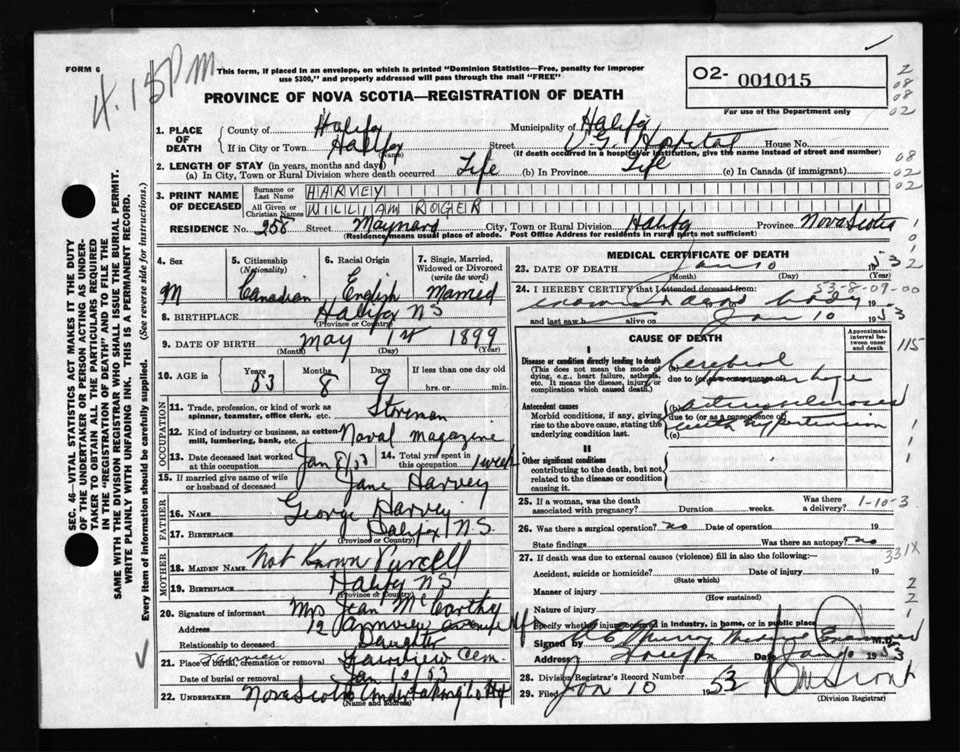 FORM 6
4.15 PM
This form, if placed in an envelope, on which is printed "Dominion Statistics—Free, penalty for improper
use $300," and properly addressed will pass through the mail "FREE"
PROVINCE OF NOVA SCOTIA—REGISTRATION OF DEATH
02- 001015
For use of the Department only
2
08
08
02
08
02
02
1. PLACE OF DEATH { County of Halifax Municipality of Halifax
If in City or Town Halifax (Name) Street V.G. Hospital House No.
(If death occurred in a hospital or institution, give the name instead of street and number)
2. LENGTH OF STAY (in years, months and days)
(a) In City, Town or Rural Division where death occurred Life (b) In Province Life (c) In Canada (if immigrant)
3. PRINT NAME OF DECEASED { Surname or Last Name HARVEY
All Given or Christian Names WILLIAM ROGER
RESIDENCE No. 258 Street Maynard City, Town or Rural Division Halifax Province Nova Scotia
(Residence means usual place of abode. Post Office Address for residents in rural parts not sufficient)
4. Sex M
5. Citizenship (Nationality) Canadian
6. Racial Origin English
7. Single, Married, Widowed or Divorced (write the word) Married
8. BIRTHPLACE Halifax NS
(Province or Country)
9. DATE OF BIRTH May 1st 1899
(Month) (Day) (Year)
10. AGE in Years 53 Months 8 Days 9 If less than one day old
hrs. or min.
OCCUPATION
11. Trade, profession, or kind of work as
spinner, teamster, office clerk, etc. Storeman
12. Kind of industry or business, as cotton-
mill, lumbering, bank, etc. Naval magazine
13. Date deceased last worked at this occupation Jan 8/53 14. Total yrs. spent in this occupation 1 week
15. If married give name of wife or husband of deceased Jane Harvey
FATHER
16. NAME George Harvey
17. BIRTHPLACE Halifax NS.
(Province or Country)
MOTHER
18. MAIDEN NAME Not Known Purcell
19. BIRTHPLACE Halifax NS
(Province or Country)
20. Signature of informant Mrs Jean McCarthy
Address 12 avenue Hfx
Relationship to deceased Daughter
21. Place of burial, cremation or removal Fairview Cem.
Date of burial or removal Jan 12/53
22. UNDERTAKER Nova Scotia Undertaking Co Hfx
(Name and address)
MEDICAL CERTIFICATE OF DEATH
23. DATE OF DEATH Jan 10 1953
(Month) (Day)
53-8-09-00
24. I HEREBY CERTIFY that I attended deceased from:
body 19
and last saw h alive on Jan 10 1953
CAUSE OF DEATH
Approximate interval between onset and death
115
I
Disease or condition directly leading to death
(This does not mean the mode of dying, e.g., heart failure, asthenia, etc. It means the disease, injury or complication which caused death.)
(a) Cerebral
due to (or as a consequence of) hemorrhage
Antecedent causes
Morbid conditions, if any, giving rise to the above cause, stating the underlying condition last.
(b) arteriosclerosis
due to (or as a consequence of)
(c) with hypertension
II
Other significant conditions
contributing to the death, but not related to the disease or condition causing it.
25. If a woman, was the death associated with pregnancy? Duration weeks. Was there a delivery? 1-10-3
26. Was there a surgical operation? no Date of operation 19
State findings Was there an autopsy? no
331X
27. If death was due to external causes (violence) fill in also the following:
Accident, suicide or homicide? (State which) Date of injury 19
Manner of injury (How sustained)
Nature of injury
Specify whether injury occurred in industry, in home, or in public place
Signed by Murray Medical Examiner M.D.
Address Date Jan 10 1953
28. Division Registrar's Record Number
29. Filed Jan 10 1953
(Division Registrar)
SEC. 46—VITAL STATISTICS ACT MAKES IT THE DUTY
OF THE UNDERTAKER OR PERSON ACTING AS UNDER-
TAKER TO OBTAIN ALL THE PARTICULARS REQUIRED
IN THE "REGISTRATION OF DEATH" AND TO FILE THE
SAME WITH THE DIVISION REGISTRAR WHO SHALL ISSUE THE BURIAL PERMIT.
WRITE PLAINLY WITH UNFADING INK. THIS IS A PERMANENT RECORD.
Every item of information should be carefully supplied. (See reverse side for instructions.)